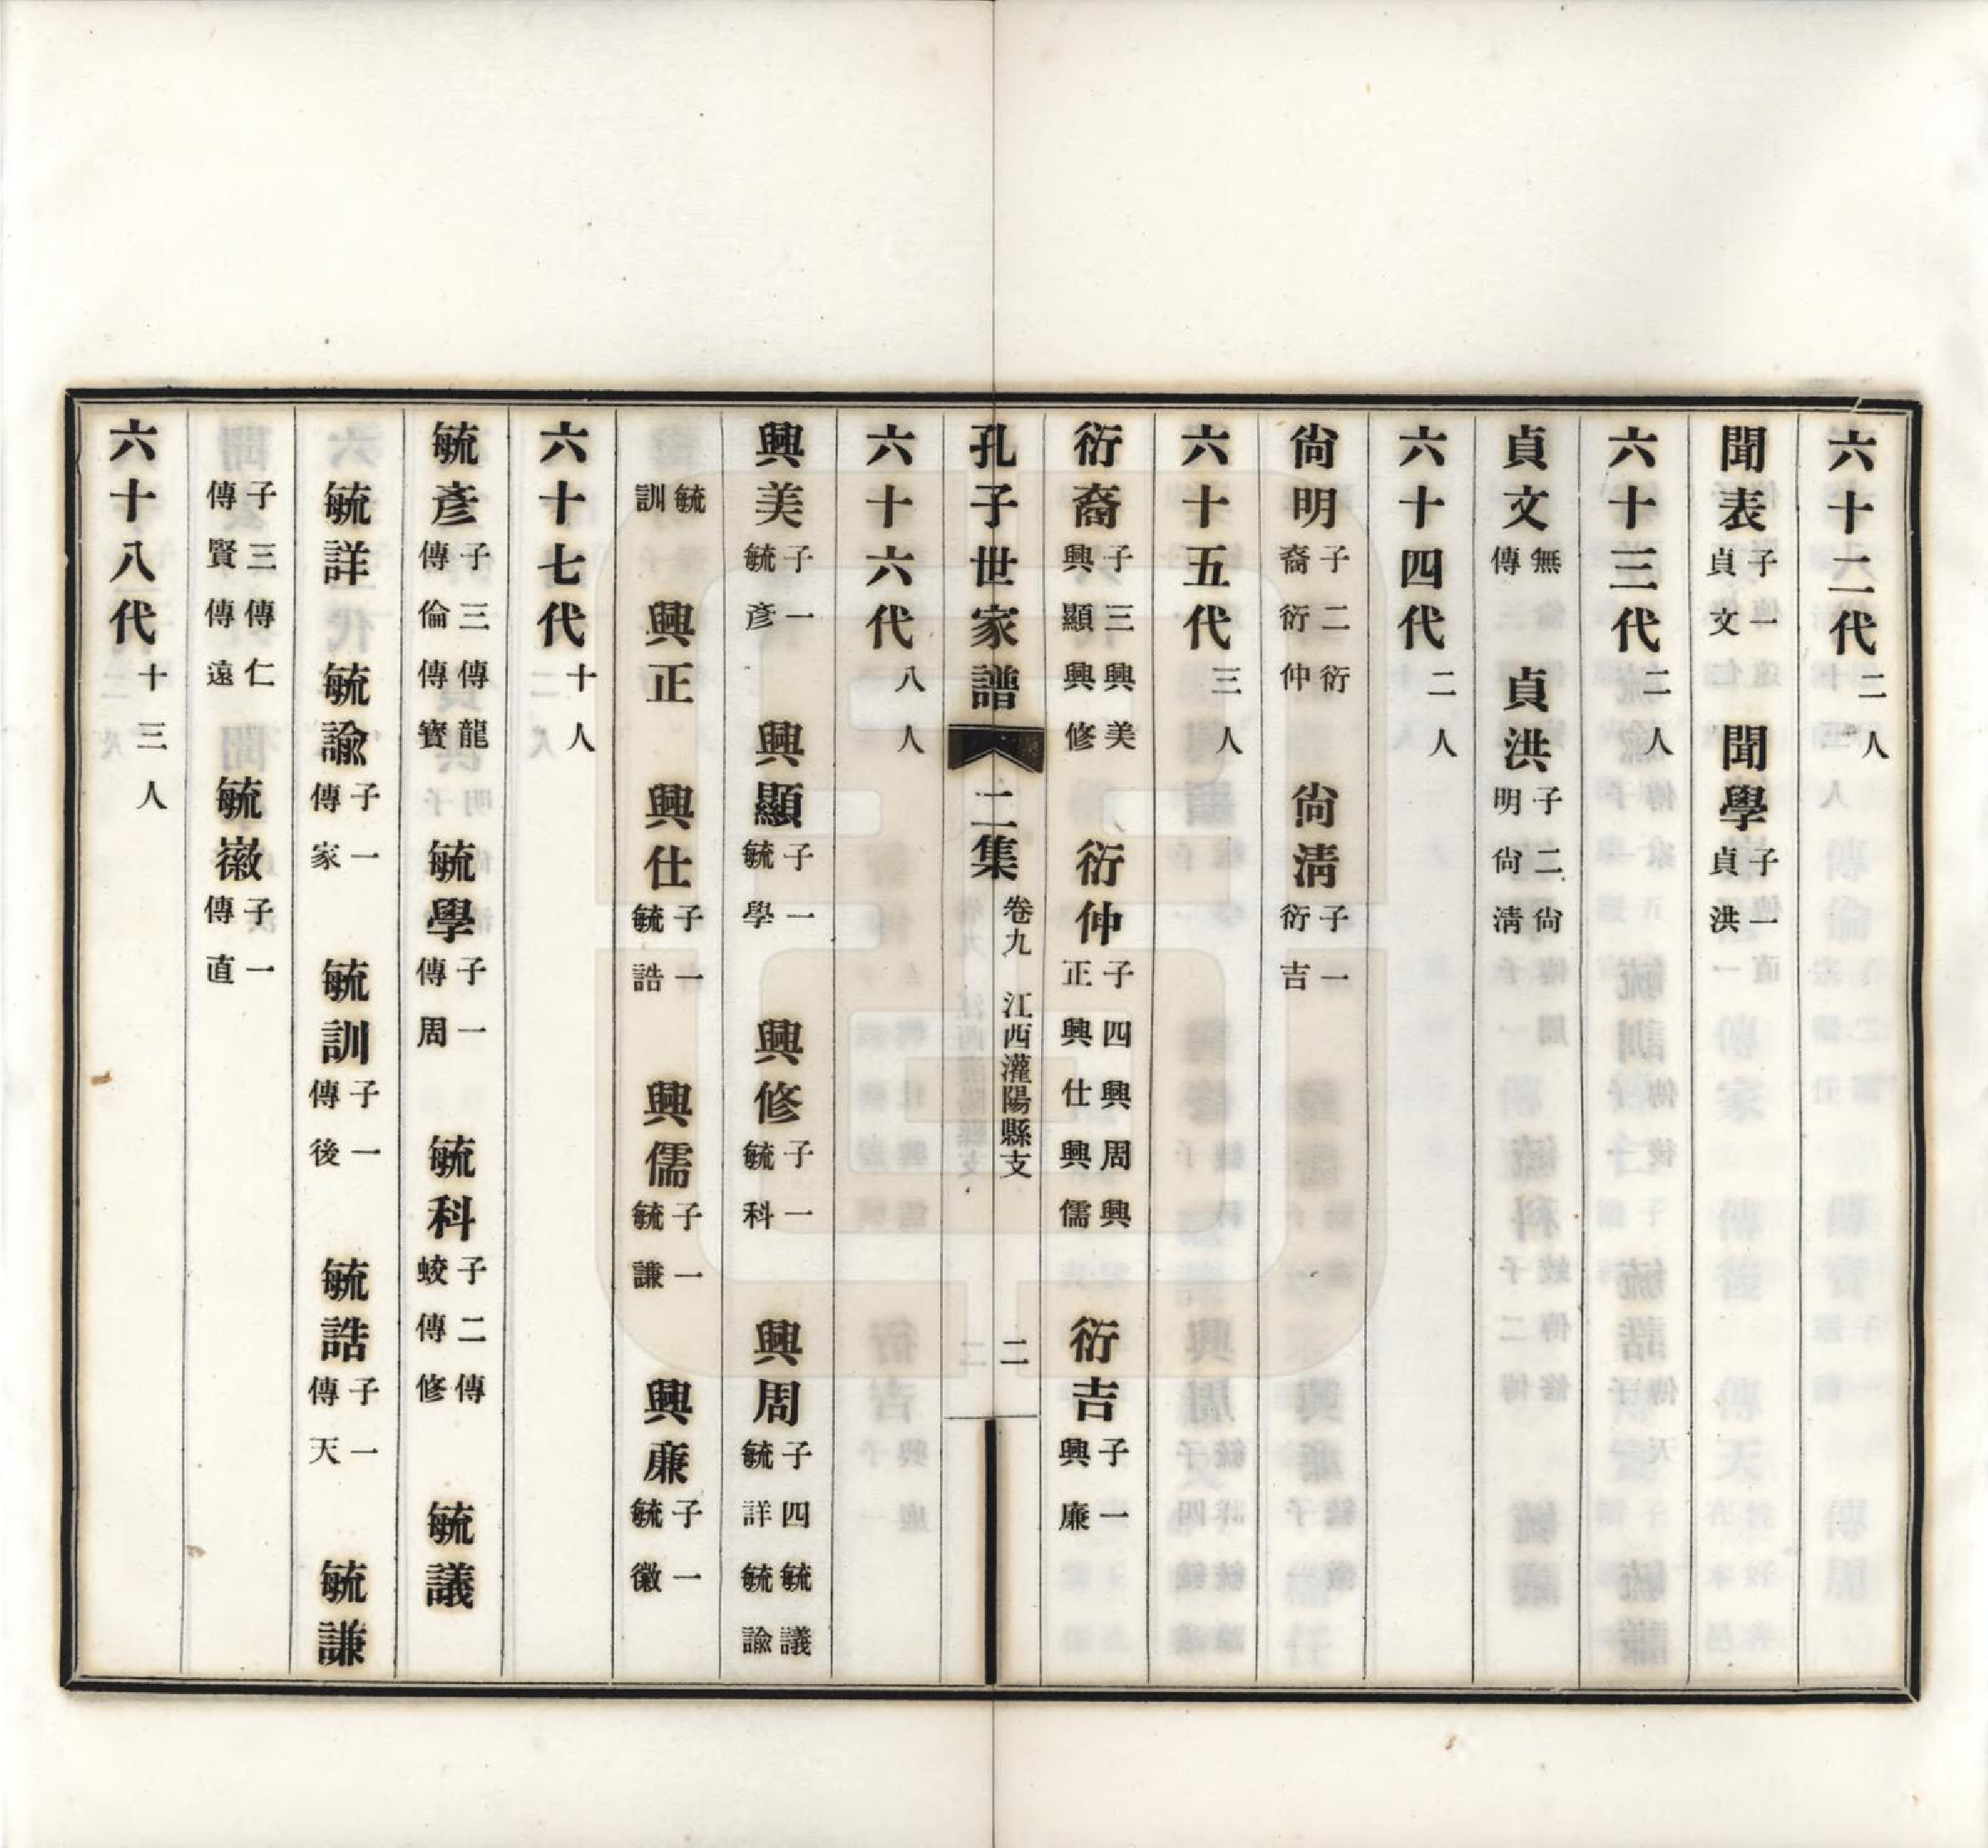 六十二代二人
聞表子一貞文 聞學子一貞洪
六十三代二人
貞文無傳 貞洪子二尙明尙淸
六十四代二人
尙明子二衍裔衍仲 尙淸子一衍吉
六十五代三人
衍裔子三興美興顯興修 衍仲子四興周興正興仕興儒 衍吉子一興廉
孔子世家譜 二集 卷九 江西灌陽縣支 二
六十六代八人
興美子一毓彥 興顯子一毓學 興修子一毓科 興周子四毓議毓詳毓諭
毓訓 興正 興仕子一毓誥 興儒子一毓謙 興廉子一毓徽
六十七代十人
毓彥子三傳龍傳倫傳寶 毓學子一傳周 毓科子二傳蛟傳修 毓議
毓詳 毓諭子一傳家 毓訓子一傳後 毓誥子一傳天 毓謙
子三傳仁傳賢傳遠 毓徽子一傳直
六十八代十三人